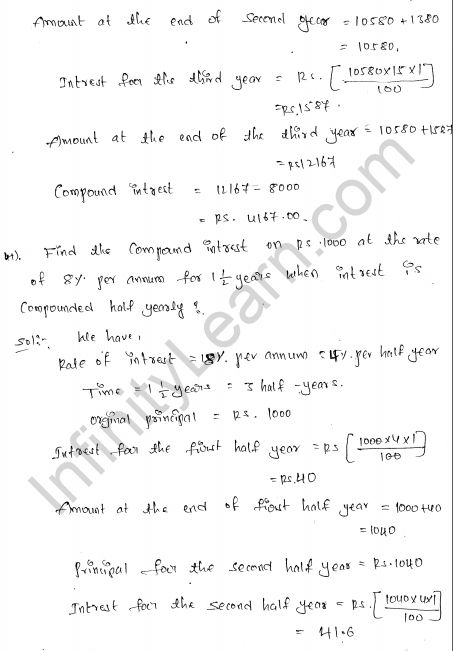 Amount at the end of second year = 10580 + 1380
= 10580.
Intrest for the third year = Rs. [10580x15x1/100]
= Rs.1587.
Amount at the end of the third year = 10580 + 1587
= Rs12167
Compound intrest = 12167 - 8000
= Rs. 4167.00.
Find the Compound intrest on Rs.1000 at the rate
of 8%. per annum for 1 1/2 years when intrest is
Compounded half yearly?
Sol:- We have,
Rate of intrest = 8%. per annum = 4%. per half year
Time = 1 1/2 years = 3 half-years.
orginal principal = Rs. 1000
Intrest for the first half year = Rs [1000x4x1/100]
= Rs.40
Amount at the end of first half year = 1000+40
= 1040
Principal for the second half year = Rs.1040
Intrest for the second half year = Rs. [1040x4x1/100]
= 41.6
InfinityLearn.com